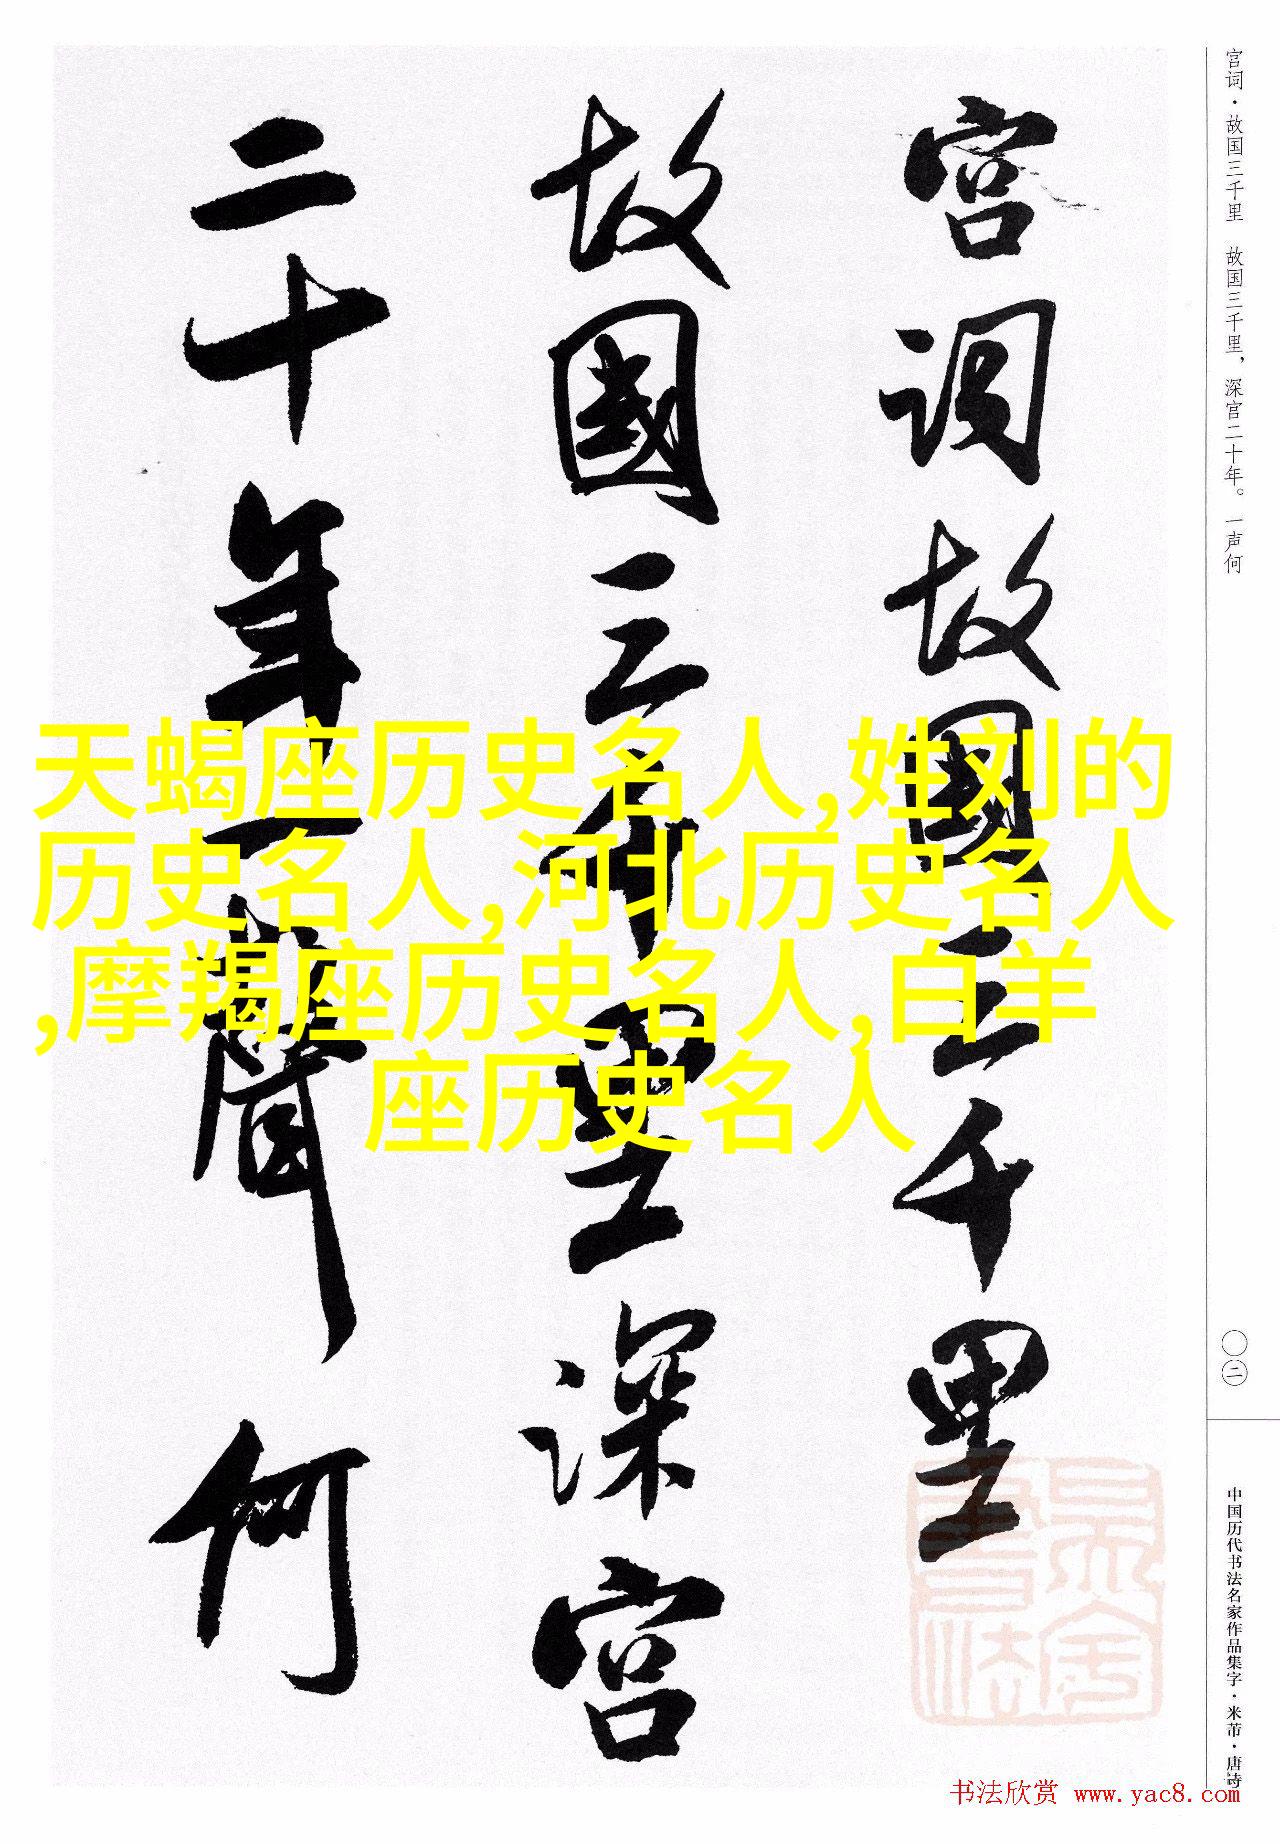 宫词故國三千里
故國三千里深宫
二十年一聲何
宫词·故国三千里 故国三千里，深宫二十年。一声何
〇二
中国历代书法名家作品集字·米芾·唐诗
天蝎座历史名人,姓刘的
历史名人,河北历史名人
,摩羯座历史名人,白羊
座历史名人
书法欣赏 www.yac8.com